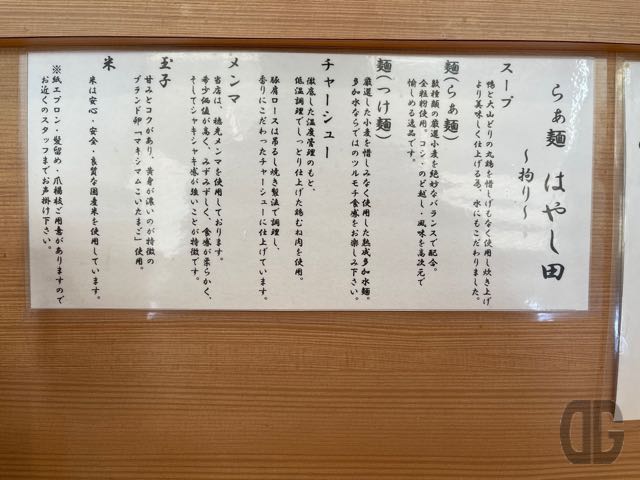 らぁ麺 はやし田
～拘り～
スープ
鴨と大山どりの丸鶏を惜しげもなく使用し炊き上げ
より美味しく仕上げる為、水にもこだわりました。
麺(らぁ麺)
数種類の厳選小麦を絶妙なバランスで配合。
全粒粉使用。コシ・のど越し・風味を高次元で
愉しめる逸品です。
麺(つけ麺)
厳選した小麦を惜しみなく使用した熟成多加水麺。
多加水ならではのツルモチ食感をお楽しみ下さい。
チャーシュー
徹底した温度管理のもと、
低温調理でしっとり仕上げた鶏むね肉を使用。
豚肩ロースは吊るし焼き製法で調理し、
香りにこだわったチャーシューに仕上げています。
メンマ
当店は、穂先メンマを使用しております。
希少価値が高く、みずみずしく、食感が柔らかく、
そしてシャキシャキ感が強いことが特徴です。
玉子
甘みとコクがあり、黄身が濃いのが特徴の
ブランド卵「マキシマムこいたまご」使用。
米
米は安心・安全・良質な国産米を使用しています。
※紙エプロン・髪留め・爪楊枝ご用意がありますので
お近くのスタッフまでお声掛け下さい。
DG